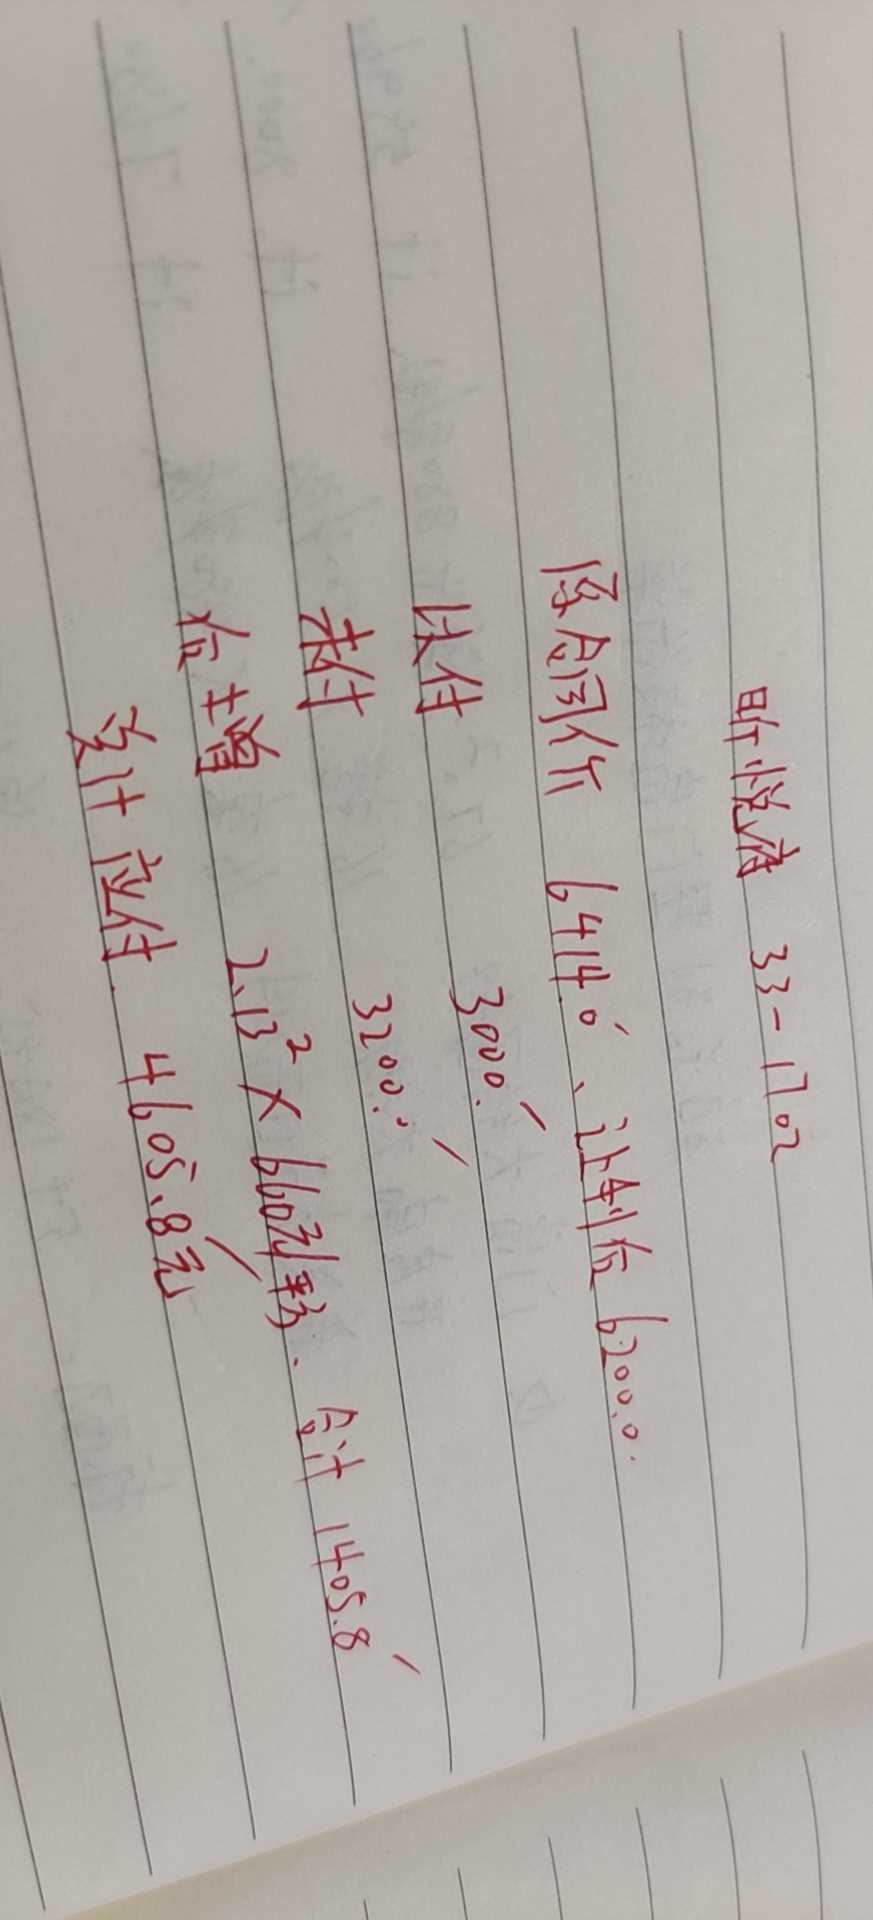 昕悦府 33-1702
原合同价 6414.0、让利后 6200.0.
以付 3000.
未付 3200.
后增 2.13² × 660元/平方. 合计 1405.8
总计应付 4605.8元